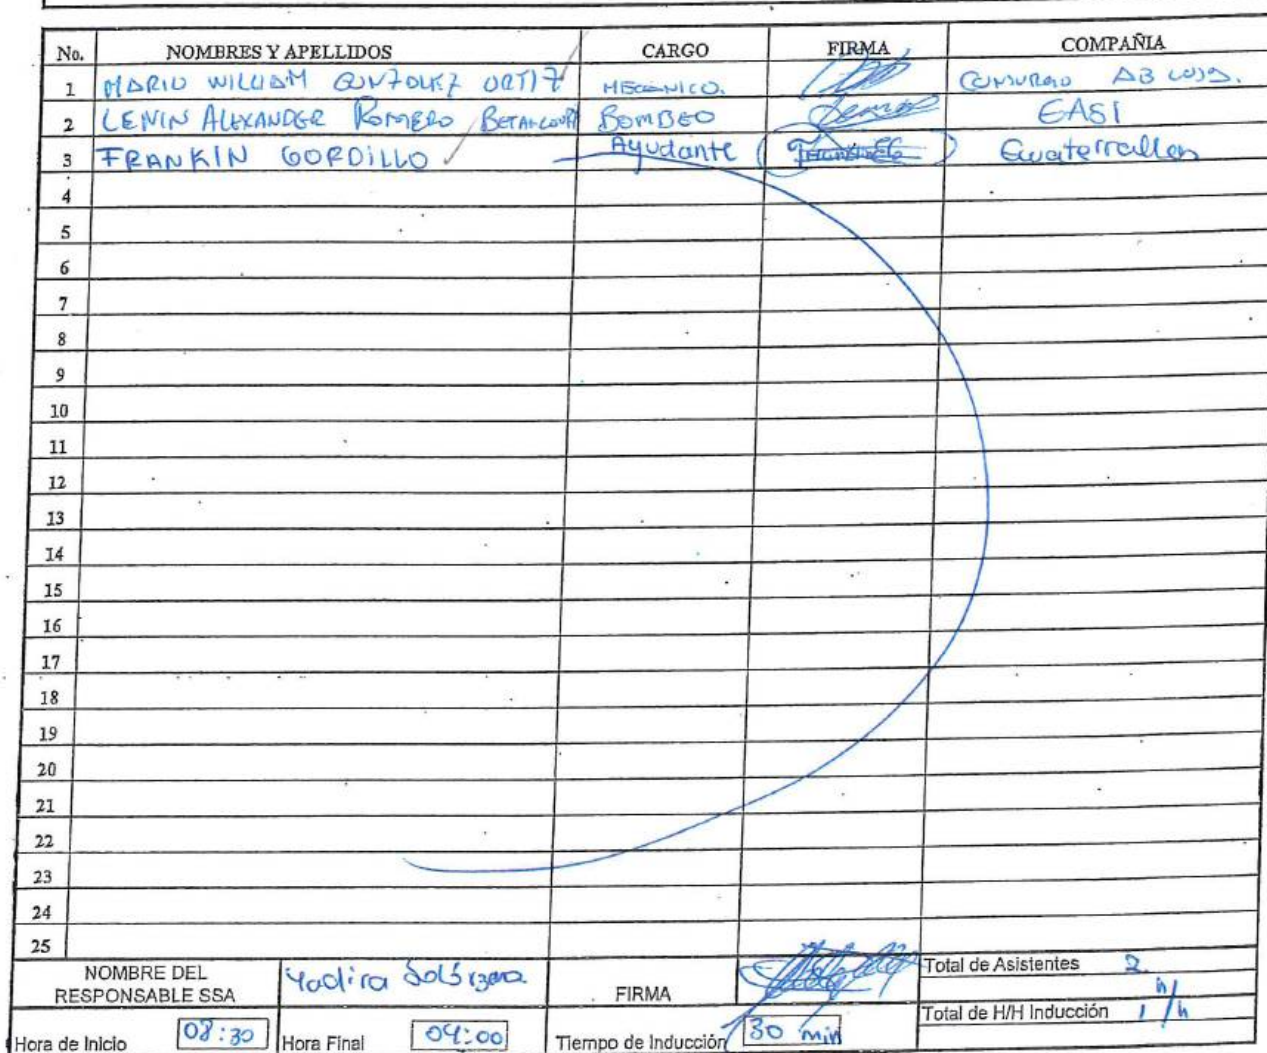 No. NOMBRES Y APELLIDOS CARGO FIRMA COMPAÑIA
1 MARIO WILLIAM GONZALEZ ORTIZ MECANICO. CONSORCIO AB
2 LENIN ALEXANDER ROMERO BETANCOURT BOMBEO EASI
3 FRANKIN GORDILLO Ayudante
4
5
6
7
8
9
10
11
12
13
14
15
16
17
18
19
20
21
22
23
24
25
NOMBRE DEL RESPONSABLE SSA Yadira Solórzano FIRMA Total de Asistentes 2
Total de H/H Inducción 1 h/h
Hora de Inicio 08:30 Hora Final 09:00 Tiempo de Inducción 30 min